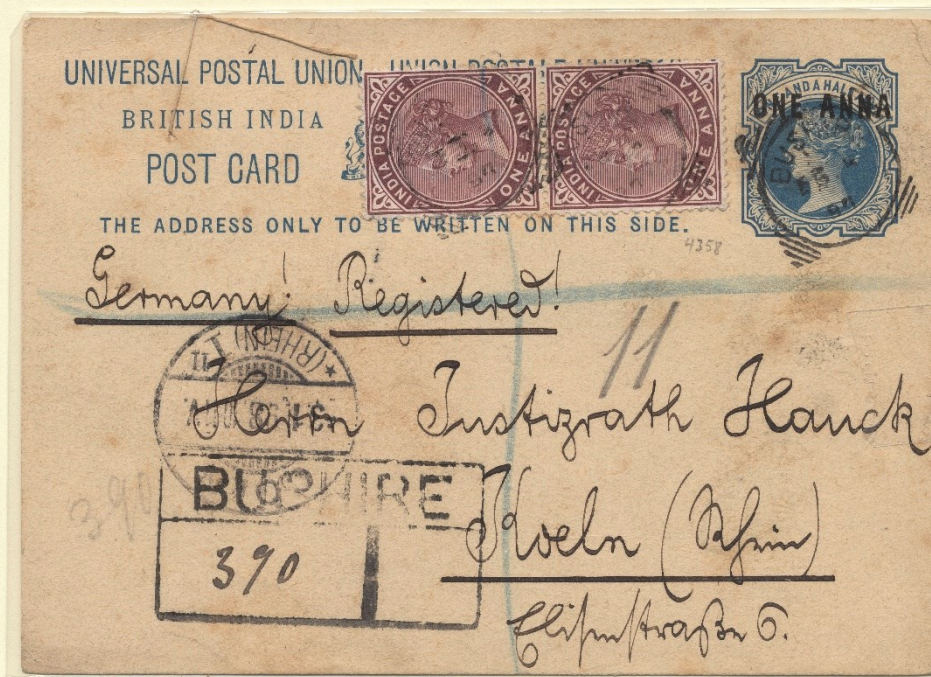 UNIVERSAL POSTAL UNION
BRITISH INDIA
POST CARD
THE ADDRESS ONLY TO BE WRITTEN ON THIS SIDE.
INDIA POSTAGE
ONE ANNA
INDIA POSTAGE
ONE ANNA
AND A HAL
ONE ANNA
4358
Germany! Registered!
11
(RHEIN)
Herrn Justizrath Hauck
390
BUSHIRE
390
Koeln (Rhein)
Elisenstraße 6.